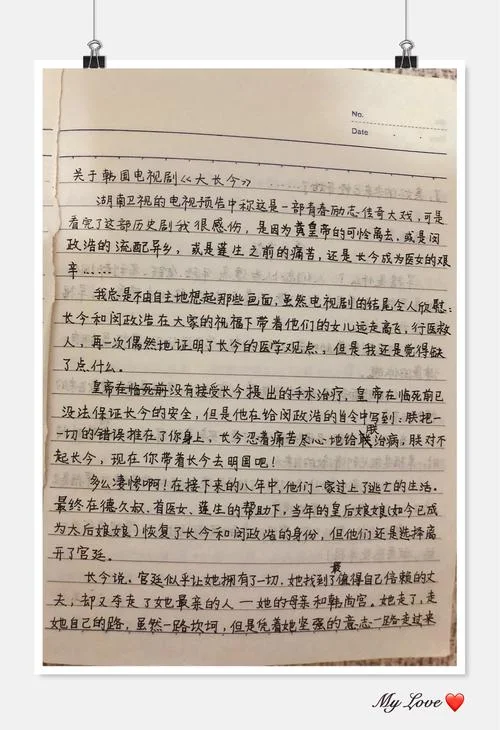 No.
Date
关于韩国电视剧《大长今》
湖南卫视的电视预告中称这是一部青春励志传奇大戏,可是
看完了这部历史剧我很感伤,是因为黄皇帝的可怜离去,或是闵
政浩的流配异乡,或是莲生之前的痛苦,还是长今成为医女的艰
辛……
我总是不由自主地想起那些画面,虽然电视剧的结尾令人欣慰:
长今和闵政浩在大家的祝福下带着他们的女儿远走高飞,行医救
人,再一次偶然地证明了长今的医学观点,但是我还是觉得缺
了点什么。
皇帝在临死前没有接受长今提出的手术治疗,皇帝在临死前已
没法保证长今的安全,但是他在给闵政浩的旨令中写到:朕把一
一切的错误推在了你身上,长今忍着痛苦尽心地给朕治病,朕对不
起长今,现在你带着长今去明国吧!
多么凄惨啊!在接下来的八年中,他们一家过上了逃亡的生活。
最终在德久叔、首医女、莲生的帮助下,当年的皇后娘娘(如今已成
为太后娘娘)恢复了长今和闵政浩的身份,但他们还是选择离
开了宫廷。
长今说,宫廷似乎让她拥有了一切,她找到了最值得自己信赖的丈
夫,却又夺走了她最亲的人一她的母亲和韩尚宫。她走了,走
她自己的路,虽然一路坎坷,但是凭着她坚强的意志一路走过来
My Love